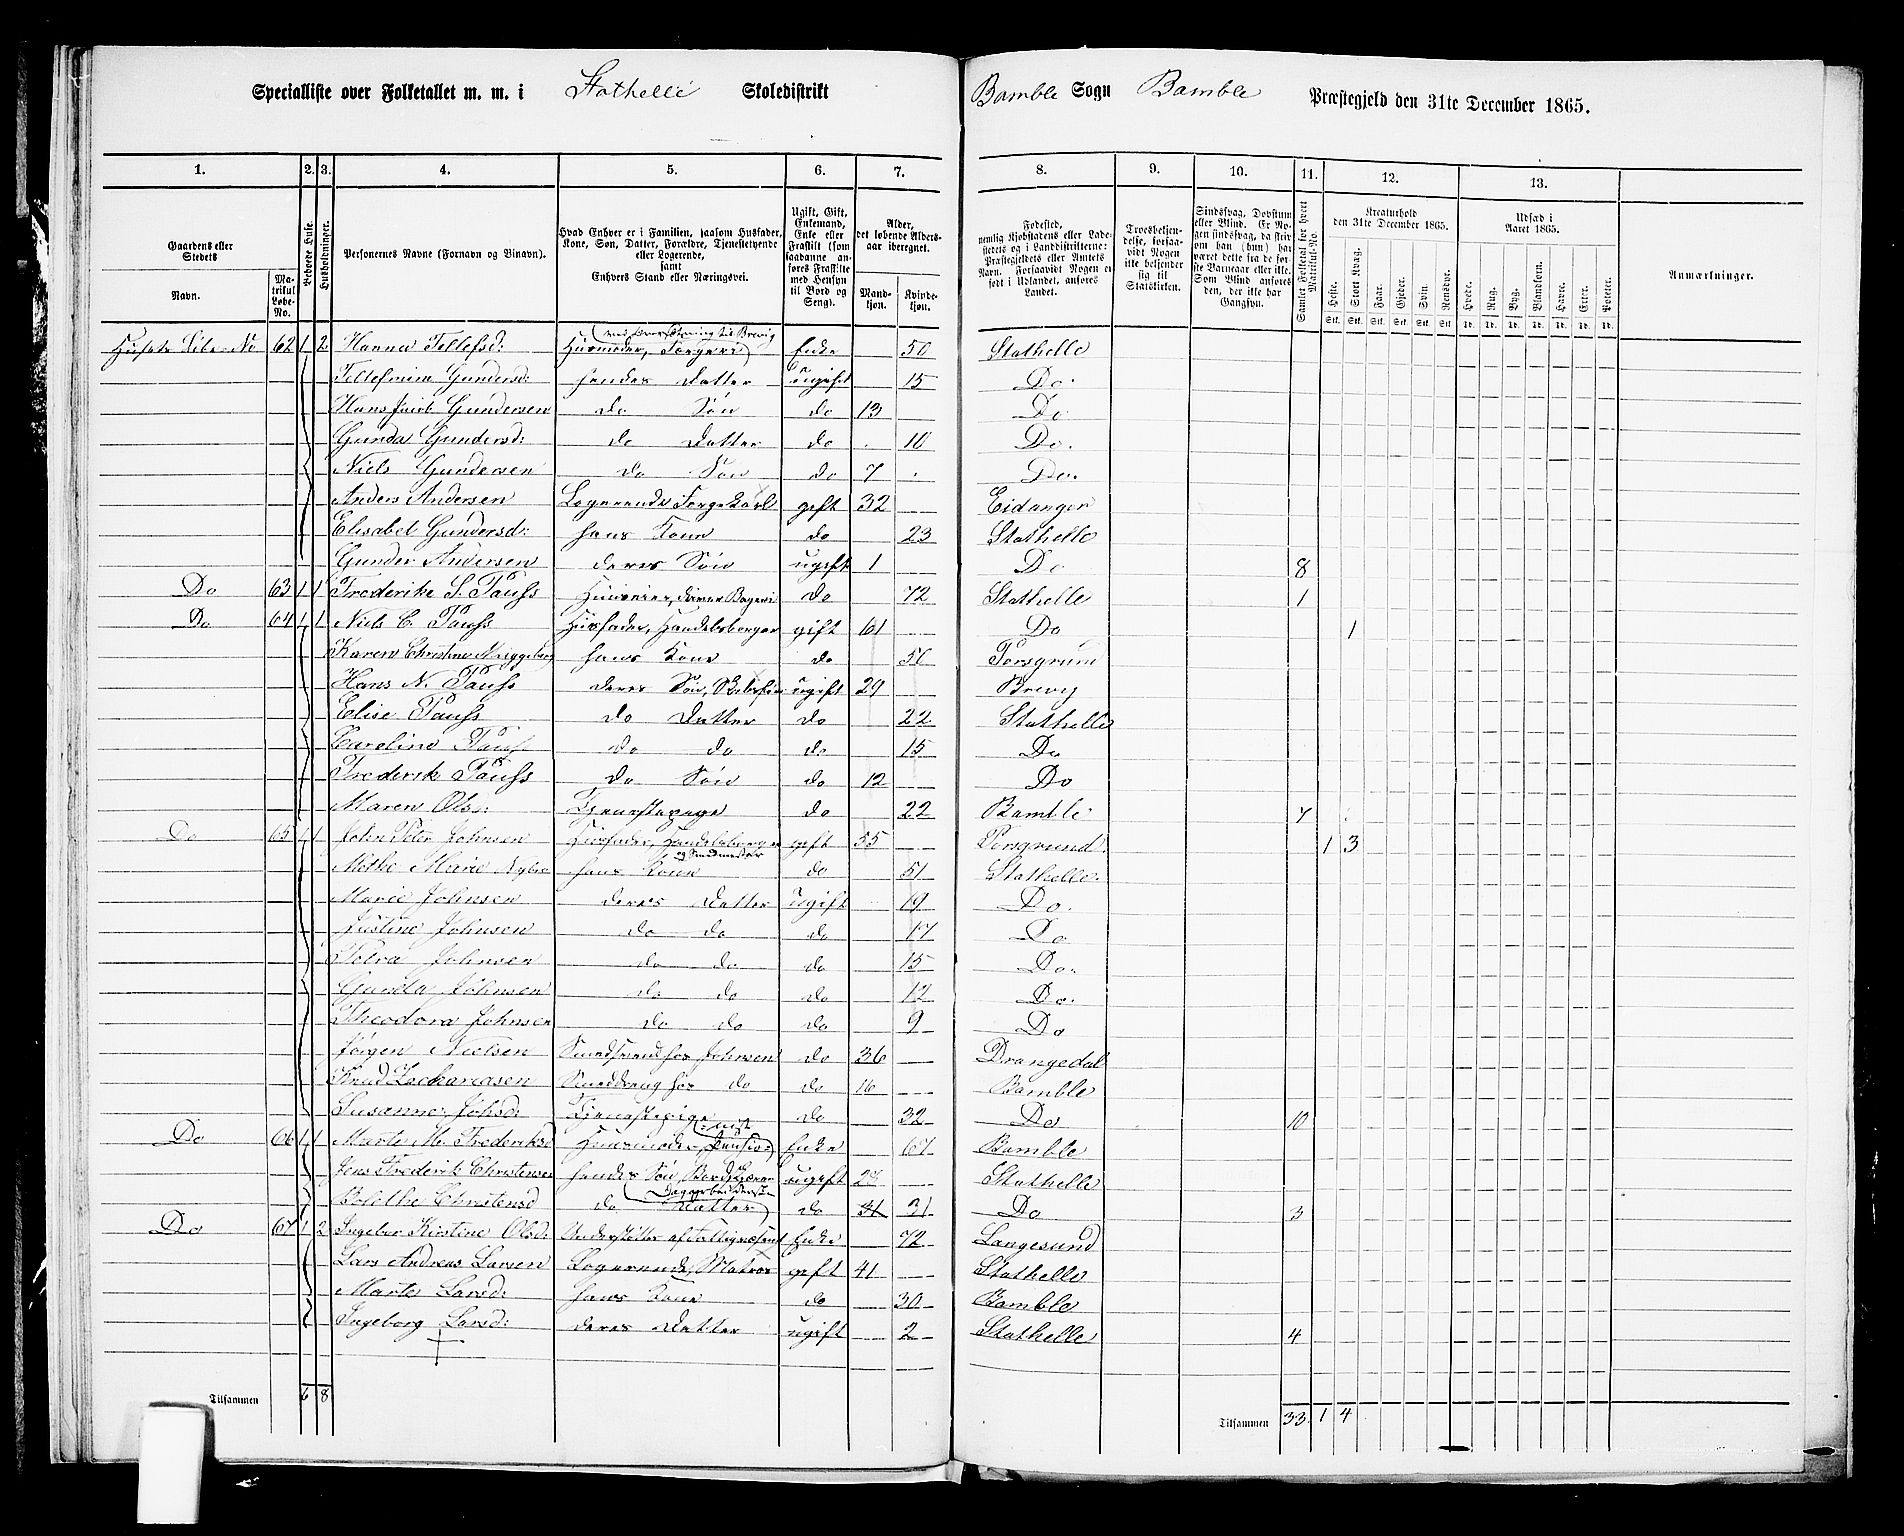 Specialliste over Folketallet m. m. i Stathelle Skoledistrikt Bamble Sogn Bamble Præstegjeld den 31te December 1865.
1. 2. 3. 4. 5. 6. 7. 8. 9. 10. 11. 12. 13.
Gaardens eller Stedets
Navn.
Matrikul Løbe-No.
Beboede Huse.
Husholdninger.
Personernes Navne (Fornavn og Binavn).
Hvad Enhver er i Familien, saasom Husfader, Kone, Søn, Datter, Forældre, Tjenestetyende eller Logerende, samt Enhvers Stand eller Næringsvei.
Ugift, Gift, Enkemand, Enke eller Fraskilt (som saadanne anføres Fraskilte med Hensyn til Bord og Seng).
Alder, det løbende Aldersaar iberegnet.
Mandkjøn. Kvindekjøn.
Fødested, nemlig Kjøbstadens eller Ladestedets og i Landdistrikterne: Præstegjeldets eller Amtets Navn. Forsaavidt Nogen er født i Udlandet, anføres Landet.
Troesbekjendelse, forsaavidt Nogen ikke bekjender sig til Statskirken.
Sindssvag, Døvstum eller Blind. Er Nogen sindssvag, da skrives om han (hun) har været dette fra de første Barneaar eller ikke. Som Blind anføres den, der ikke har Gangsyn.
Samlet Folketal for hvert Matrikul-No.
Kreaturhold den 31te December 1865.
Heste. Stort Kvæg. Faar. Gjeder. Svin. Rensdyr.
Udsæd i Aaret 1865.
Hvede. Rug. Byg. Blandkorn. Havre. Erter. Poteter.
Anmærkninger.
62 1 2 Hanna Tellefsd: Husmoder, Enke 50 Stathelle
Gundersd: hendes Datter ugift 15 Do.
Hans Jacob Gundersen do Søn do 13 Do
Gunda Gundersd: do Datter do 10 Do.
Niels Gundersen do Søn do 7 Do.
Anders Andersen Logerende gift 32 Eidanger
Elisabet Gundersd: hans Kone do 23 Stathelle
Gunder Andersen deres Søn ugift 1 Do 8
Do 63 1 1 Frederike S. Pauss do 72 Stathelle 1
Do 64 1 1 Niels C. Pauss Husfader, Handelsborger gift 61 Do 1
Karen Christine hans Kone do Porsgrund
Hans N. Pauss deres Søn, ugift 29 Brevig
Elise Pauss do Datter do 22 Stathelle
Caroline Pauss do do do 15 Do
Frederik Pauss do Søn do 12 Do
Maren Olsd: Tjenestepige do 22 Bamble 7
Do 65 1 1 John Peter Johnsen Husfader, Handelsborger gift 55 Porsgrund 1 3
og Smedmester
Marie hans Kone do 51 Stathelle.
Marie Johnsen deres Datter ugift 19 Do.
Justine Johnsen do do do 17 Do
Petra Johnsen do do do 15 Do.
Gunda Johnsen do do do 12 Do.
Theodora Johnsen do do do 9 Do
Jørgen Nielsen Smedsvend hos Johnsen do 36 Drangedal
Knud Zachariasen Smeddreng hos do do 16 Bamble
Susanne Johsd: Tjenestepige do 32 Do 10
Do 66 1 1 Marte M. Frederiksd Husmoder, Enke 67 Bamble
Jens Frederik Christensen hendes Søn, ugift Stathelle
Christensd do Datter do 31 Do 3
Do 67 1 2 Ingebor Kirstine Olsd: Understøttes af Fattigvæsenet Enke 72 Langesund
Lars Andreas Larsen Logerende, Matros gift 41 Stathelle
Marte Larsd: hans Kone do 30 Bamble
Ingeborg Larsd: deres Datter ugift 2 Stathelle 4
Tilsammen 6 8
Tilsammen 33 1 4